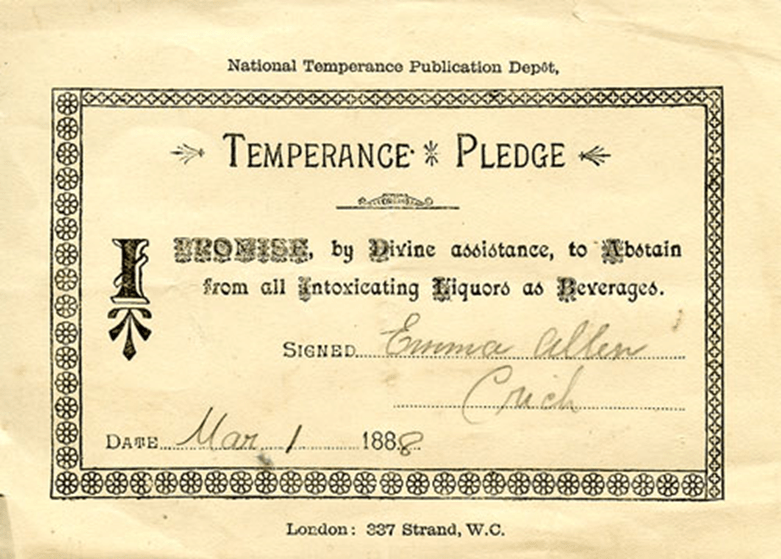 National Temperance Publication Depôt,
TEMPERANCE PLEDGE
I PROMISE, by Divine assistance, to Abstain
from all Intoxicating Liquors as Beverages.
SIGNED Emma Allen
Crich
DATE Mar 1 1888
London: 337 Strand, W.C.